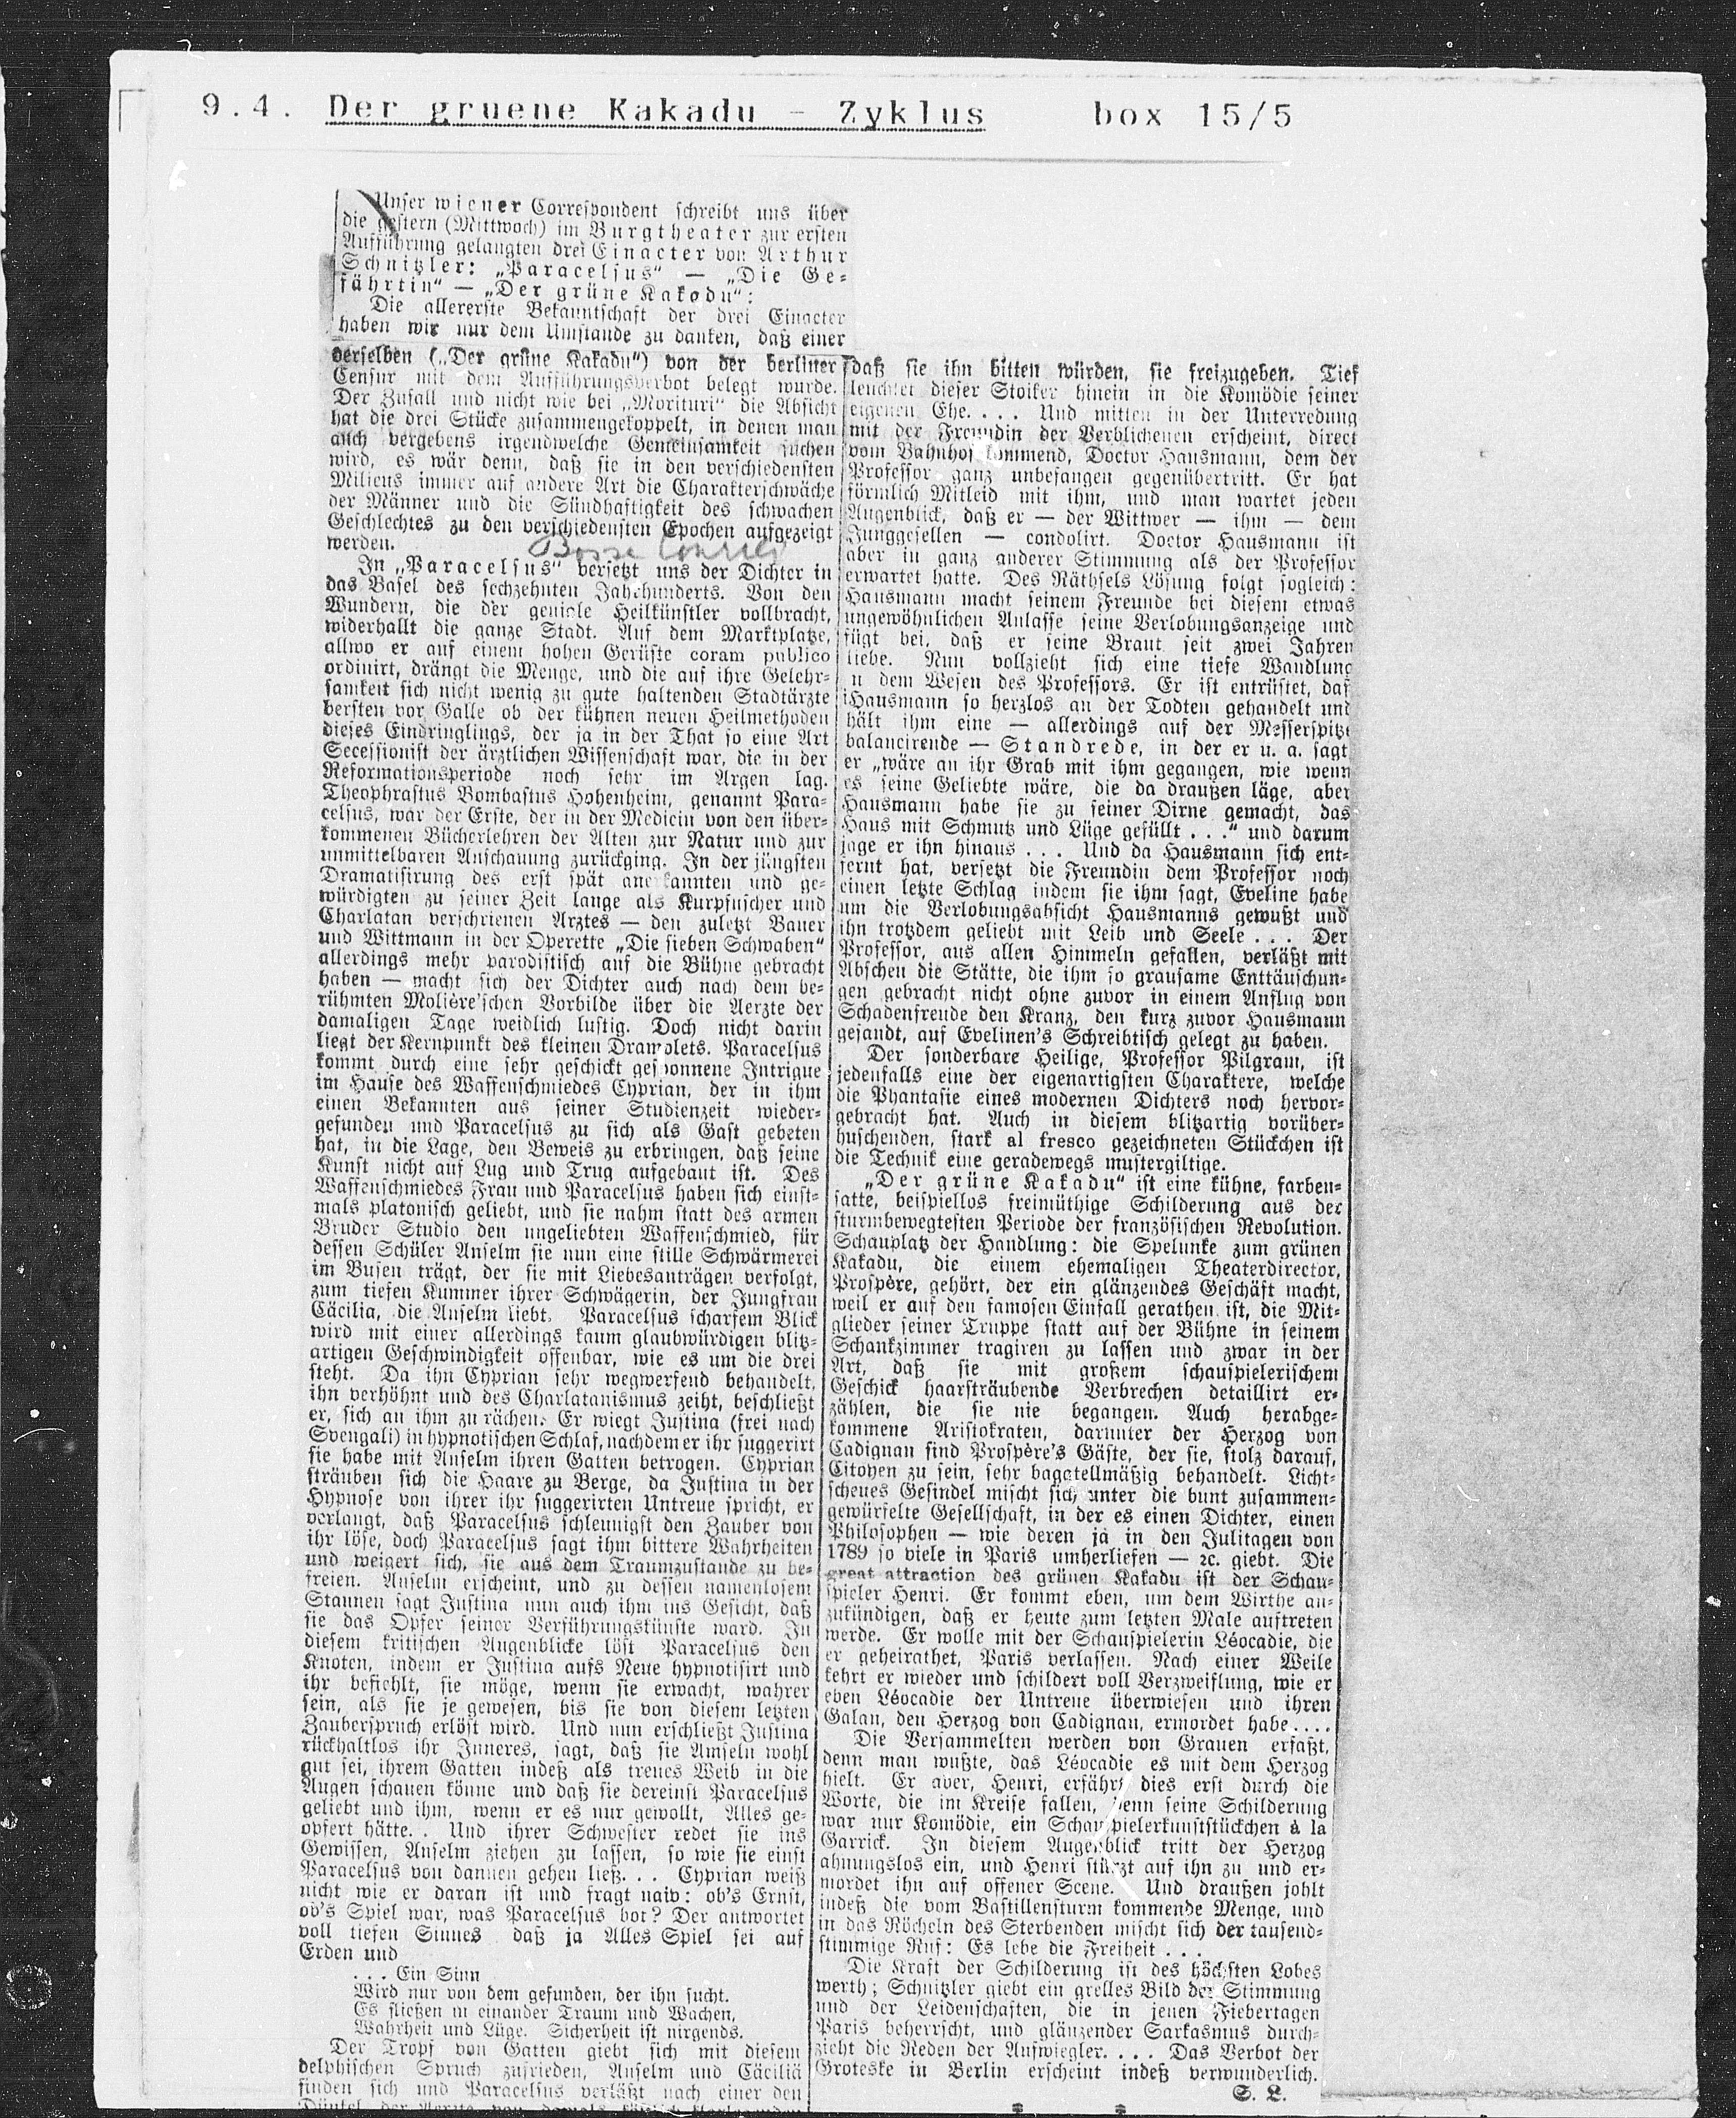 9.4. Der gruene Kakadu - Zyklus box 15/5
Unser wiener Correspondent schreibt uns über
die gestern (Mittwoch) im Burgtheater zur ersten
Aufführung gelangten drei Einacter von Arthur
Schnitzler: „Paracelsus“ — „Die Ge-
fährtin“ — „Der grüne Kakadu“:
Die allererste Bekanntschaft der drei Einacter
haben wir nur dem Umstande zu danken, daß einer
derselben („Der grüne Kakadu“) von der berliner
Censur mit dem Aufführungsverbot belegt wurde.
Der Zufall und nicht wie bei „Morituri“ die Absicht
hat die drei Stücke zusammengekoppelt, in denen man
auch vergebens irgendwelche Gemeinsamkeit suchen
wird, es wär denn, daß sie in den verschiedensten
Milieus immer auf andere Art die Charakterschwäche
der Männer und die Sündhaftigkeit des schwachen
Geschlechtes zu den verschiedensten Epochen aufgezeigt
werden.
In „Paracelsus“ versetzt uns der Dichter in
das Basel des sechzehnten Jahrhunderts. Von den
Wundern, die der geniale Heilkünstler vollbracht,
widerhallt die ganze Stadt. Auf dem Marktplatze,
allwo er auf einem hohen Gerüste coram publico
ordinirt, drängt die Menge, und die auf ihre Gelehr-
samkeit sich nicht wenig zu gute haltenden Stadtärzte
bersten vor Galle ob der kühnen neuen Heilmethoden
dieses Eindringlings, der ja in der That so eine Art
Secessionist der ärztlichen Wissenschaft war, die in der
Reformationsperiode noch sehr im Argen lag.
Theophrastus Bombastus Hohenheim, genannt Para-
celsus, war der Erste, der in der Medicin von den über-
kommenen Bücherlehren der Alten zur Natur und zur
unmittelbaren Anschauung zurückging. In der jüngsten
Dramatisirung des erst spät anerkannten und ge-
würdigten zu seiner Zeit lange als Kurpfuscher und
Charlatan verschrienen Arztes — den zuletzt Bauer
und Wittmann in der Operette „Die sieben Schwaben“
allerdings mehr parodistisch auf die Bühne gebracht
haben — macht sich der Dichter auch nach dem be-
rühmten Molière'schen Vorbilde über die Aerzte der
damaligen Tage weidlich lustig. Doch nicht darin
liegt der Kernpunkt des kleinen Dramolets. Paracelsus
kommt durch eine sehr geschickt gesponnene Intrigue
im Hause des Waffenschmiedes Cyprian, der in ihm
einen Bekannten aus seiner Studienzeit wieder-
gefunden und Paracelsus zu sich als Gast gebeten
hat, in die Lage, den Beweis zu erbringen, daß seine
Kunst nicht auf Lug und Trug aufgebaut ist. Des
Waffenschmiedes Frau und Paracelsus haben sich einst-
mals platonisch geliebt, und sie nahm statt des armen
Bruder Studio den ungeliebten Waffenschmied, für
dessen Schüler Anselm sie nun eine stille Schwärmerei
im Busen trägt, der sie mit Liebesanträgen verfolgt,
zum tiefen Kummer ihrer Schwägerin, der Jungfrau
Cäcilia, die Anselm liebt. Paracelsus scharfem Blick
wird mit einer allerdings kaum glaubwürdigen blitz-
artigen Geschwindigkeit offenbar, wie es um die drei
steht. Da ihn Cyprian sehr wegwerfend behandelt,
ihn verhöhnt und des Charlatanismus zeiht, beschließt
er, sich an ihm zu rächen. Er wiegt Justina (frei nach
Svengali) in hypnotischen Schlaf, nachdem er ihr suggerirt
sie habe mit Anselm ihren Gatten betrogen. Cyprian
sträuben sich die Haare zu Berge, da Justina in der
Hypnose von ihrer ihr suggerirten Untreue spricht, er
verlangt, daß Paracelsus schleunigst den Zauber von
ihr löse, doch Paracelsus sagt ihm bittere Wahrheiten
und weigert sich, sie aus dem Traumzustande zu be-
freien. Anselm erscheint, und zu dessen namenlosem
Staunen sagt Justina nun auch ihm ins Gesicht, daß
sie das Opfer seiner Verführungskünste ward. In
diesem kritischen Augenblicke löst Paracelsus den
Knoten, indem er Justina aufs Neue hypnotisirt und
ihr befiehlt, sie möge, wenn sie erwacht, wahrer
sein, als sie je gewesen, bis sie von diesem letzten
Zauberspruch erlöst wird. Und nun erschließt Justina
rückhaltlos ihr Inneres, sagt, daß sie Amseln wohl
gut sei, ihrem Gatten indeß als treues Weib in die
Augen schauen könne und daß sie dereinst Paracelsus
geliebt und ihm, wenn er es nur gewollt, Alles ge-
opfert hätte.. Und ihrer Schwester redet sie ins
Gewissen, Anselm ziehen zu lassen, so wie sie einst
Paracelsus von dannen gehen ließ... Cyprian weiß
nicht wie er daran ist und fragt naiv: ob's Ernst,
ob's Spiel war, was Paracelsus bot? Der antwortet
voll tiefen Sinnes daß ja Alles Spiel sei auf
Erden und
... Ein Sinn
Wird nur von dem gefunden, der ihn sucht.
Es fließen in einander Traum und Wachen,
Wahrheit und Lüge. Sicherheit ist nirgends.
Der Tropf von Gatten giebt sich mit diesem
delphischen Spruch zufrieden, Anselm und Cäcilia
finden sich und Paracelsus verläßt nach einer den
Dünkel der Aerzte von damals
daß sie ihn bitten würden, sie freizugeben. Tief
leuchtet dieser Stoiker hinein in die Komödie seiner
eigenen Ehe.... Und mitten in der Unterredung
mit der Freundin der Verblichenen erscheint, direct
vom Bahnhof kommend, Doctor Hausmann, dem der
Professor ganz unbefangen gegenübertritt. Er hat
förmlich Mitleid mit ihm, und man wartet jeden
Augenblick, daß er — der Wittwer — ihm — dem
Junggesellen — condolirt. Doctor Hausmann ist
aber in ganz anderer Stimmung als der Professor
erwartet hatte. Des Räthsels Lösung folgt sogleich:
Hausmann macht seinem Freunde bei diesem etwas
ungewöhnlichen Anlasse seine Verlobungsanzeige und
fügt bei, daß er seine Braut seit zwei Jahren
liebe. Nun vollzieht sich eine tiefe Wandlung
n dem Wesen des Professors. Er ist entrüstet, daß
Hausmann so herzlos an der Todten gehandelt und
hält ihm eine — allerdings auf der Messerspitze
balancirende — Standrede, in der er u. a. sagt
er „wäre an ihr Grab mit ihm gegangen, wie wenn
es seine Geliebte wäre, die da draußen läge, aber
Hausmann habe sie zu seiner Dirne gemacht, das
Haus mit Schmutz und Lüge gefüllt...“ und darum
jage er ihn hinaus... Und da Hausmann sich ent-
fernt hat, versetzt die Freundin dem Professor noch
einen letzte Schlag indem sie ihm sagt, Eveline habe
um die Verlobungsabsicht Hausmanns gewußt und
ihn trotzdem geliebt mit Leib und Seele... Der
Professor, aus allen Himmeln gefallen, verläßt mit
Abscheu die Stätte, die ihm so grausame Enttäuschun-
gen gebracht nicht ohne zuvor in einem Anflug von
Schadenfreude den Kranz, den kurz zuvor Hausmann
gesandt, auf Evelinen's Schreibtisch gelegt zu haben.
Der sonderbare Heilige, Professor Pilgram, ist
jedenfalls eine der eigenartigsten Charaktere, welche
die Phantasie eines modernen Dichters noch hervor-
gebracht hat. Auch in diesem blitzartig vorüber-
huschenden, stark al fresco gezeichneten Stückchen ist
die Technik eine geradewegs mustergiltige.
„Der grüne Kakadu“ ist eine kühne, farben-
satte, beispiellos freimüthige Schilderung aus der
sturmbewegtesten Periode der französischen Revolution.
Schauplatz der Handlung: die Spelunke zum grünen
Kakadu, die einem ehemaligen Theaterdirector,
Prospère, gehört, der ein glänzendes Geschäft macht,
weil er auf den famosen Einfall gerathen ist, die Mit-
glieder seiner Truppe statt auf der Bühne in seinem
Schankzimmer tragiren zu lassen und zwar in der
Art, daß sie mit großem schauspielerischem
Geschick haarsträubende Verbrechen detaillirt er-
zählen, die sie nie begangen. Auch herabge-
kommene Aristokraten, darunter der Herzog von
Cadignan sind Prospère's Gäste, der sie, stolz darauf,
Citoyen zu sein, sehr bagatellmäßig behandelt. Licht-
scheues Gesindel mischt sich unter die bunt zusammen-
gewürfelte Gesellschaft, in der es einen Dichter, einen
Philosophen — wie deren ja in den Julitagen von
1789 so viele in Paris umherliefen — ꝛc. giebt. Die
great attraction des grünen Kakadu ist der Schau-
spieler Henri. Er kommt eben, um dem Wirthe an-
zukündigen, daß er heute zum letzten Male auftreten
werde. Er wolle mit der Schauspielerin Léocadie, die
er geheirathet, Paris verlassen. Nach einer Weile
kehrt er wieder und schildert voll Verzweiflung, wie er
eben Léocadie der Untreue überwiesen und ihren
Galan, den Herzog von Cadignan, ermordet habe....
Die Versammelten werden von Grauen erfaßt,
denn man wußte, das Léocadie es mit dem Herzog
hielt. Er aber, Henri, erfährt dies erst durch die
Worte, die im Kreise fallen, denn seine Schilderung
war nur Komödie, ein Schauspielerkunststückchen à la
Garrick. In diesem Augenblick tritt der Herzog
ahnungslos ein, und Henri stürzt auf ihn zu und er-
mordet ihn auf offener Scene. Und draußen johlt
indeß die vom Bastillensturm kommende Menge, und
in das Röcheln des Sterbenden mischt sich der tausend-
stimmige Ruf: Es lebe die Freiheit...
Die Kraft der Schilderung ist des höchsten Lobes
werth; Schnitzler giebt ein grelles Bild der Stimmung
und der Leidenschaften, die in jenen Fiebertagen
Paris beherrscht, und glänzender Sarkasmus durch-
zieht die Reden der Aufwiegler.... Das Verbot der
Groteske in Berlin erscheint indeß verwunderlich.
S. L.